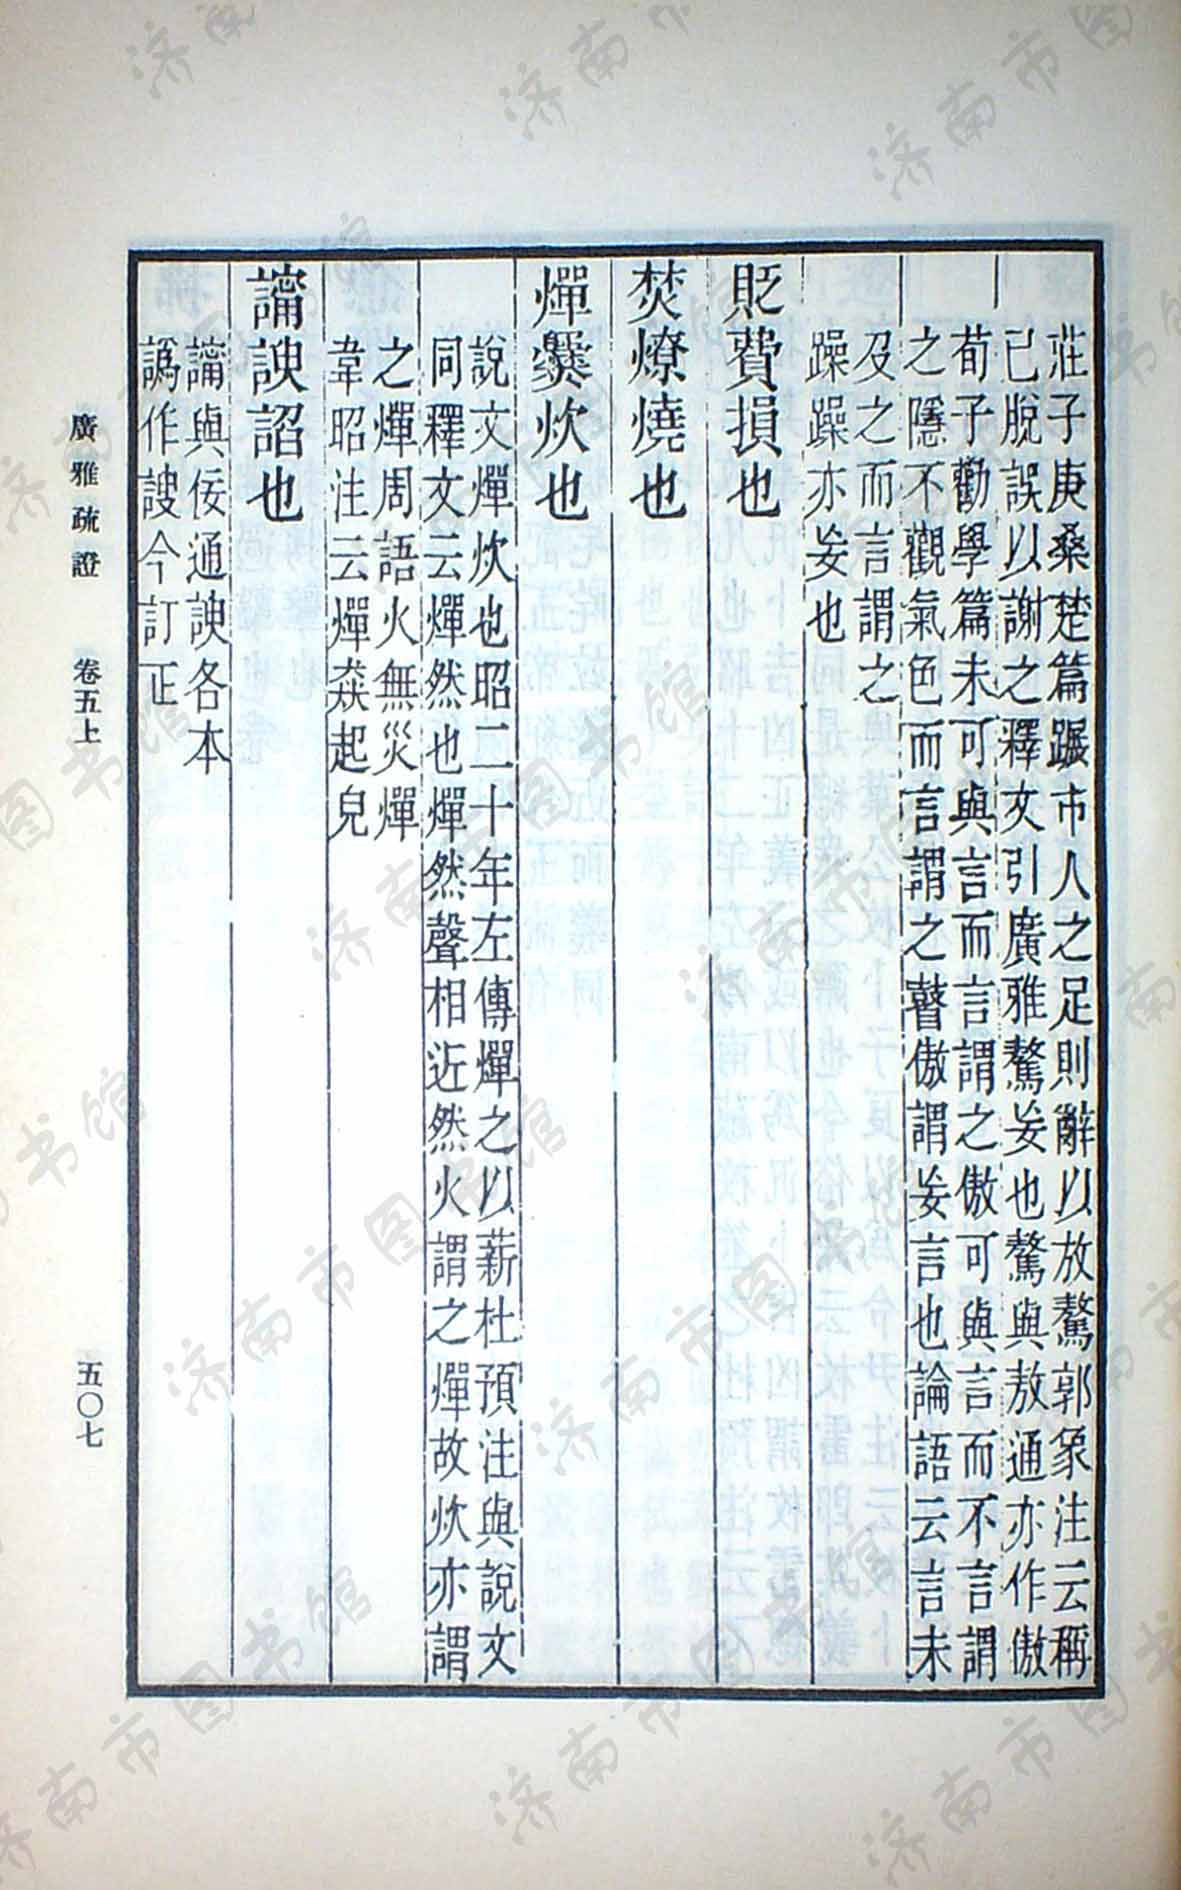 莊子庚桑楚篇蹍市人之足則辭以放驁郭象注云稱
已脫誤以謝之釋文引廣雅驁妄也驁與敖通亦作傲
荀子勸學篇未可與言而言謂之傲可與言而不言謂
之隱不觀氣色而言謂之瞽傲謂妄言也論語云言未
及之而言謂之
躁躁亦妄也
貶費損也
焚燎燒也
燀爨炊也
說文燀炊也昭二十年左傳燀之以薪杜預注與說文
同釋文云燀然也燀然聲相近然火謂之燀故炊亦謂
之燀周語火無災燀
韋昭注云燀焱起皃
讇諛諂也
讇與佞通諛各本
譌作謏今訂正
廣雅疏證 卷五上 五〇七
济南市图书馆